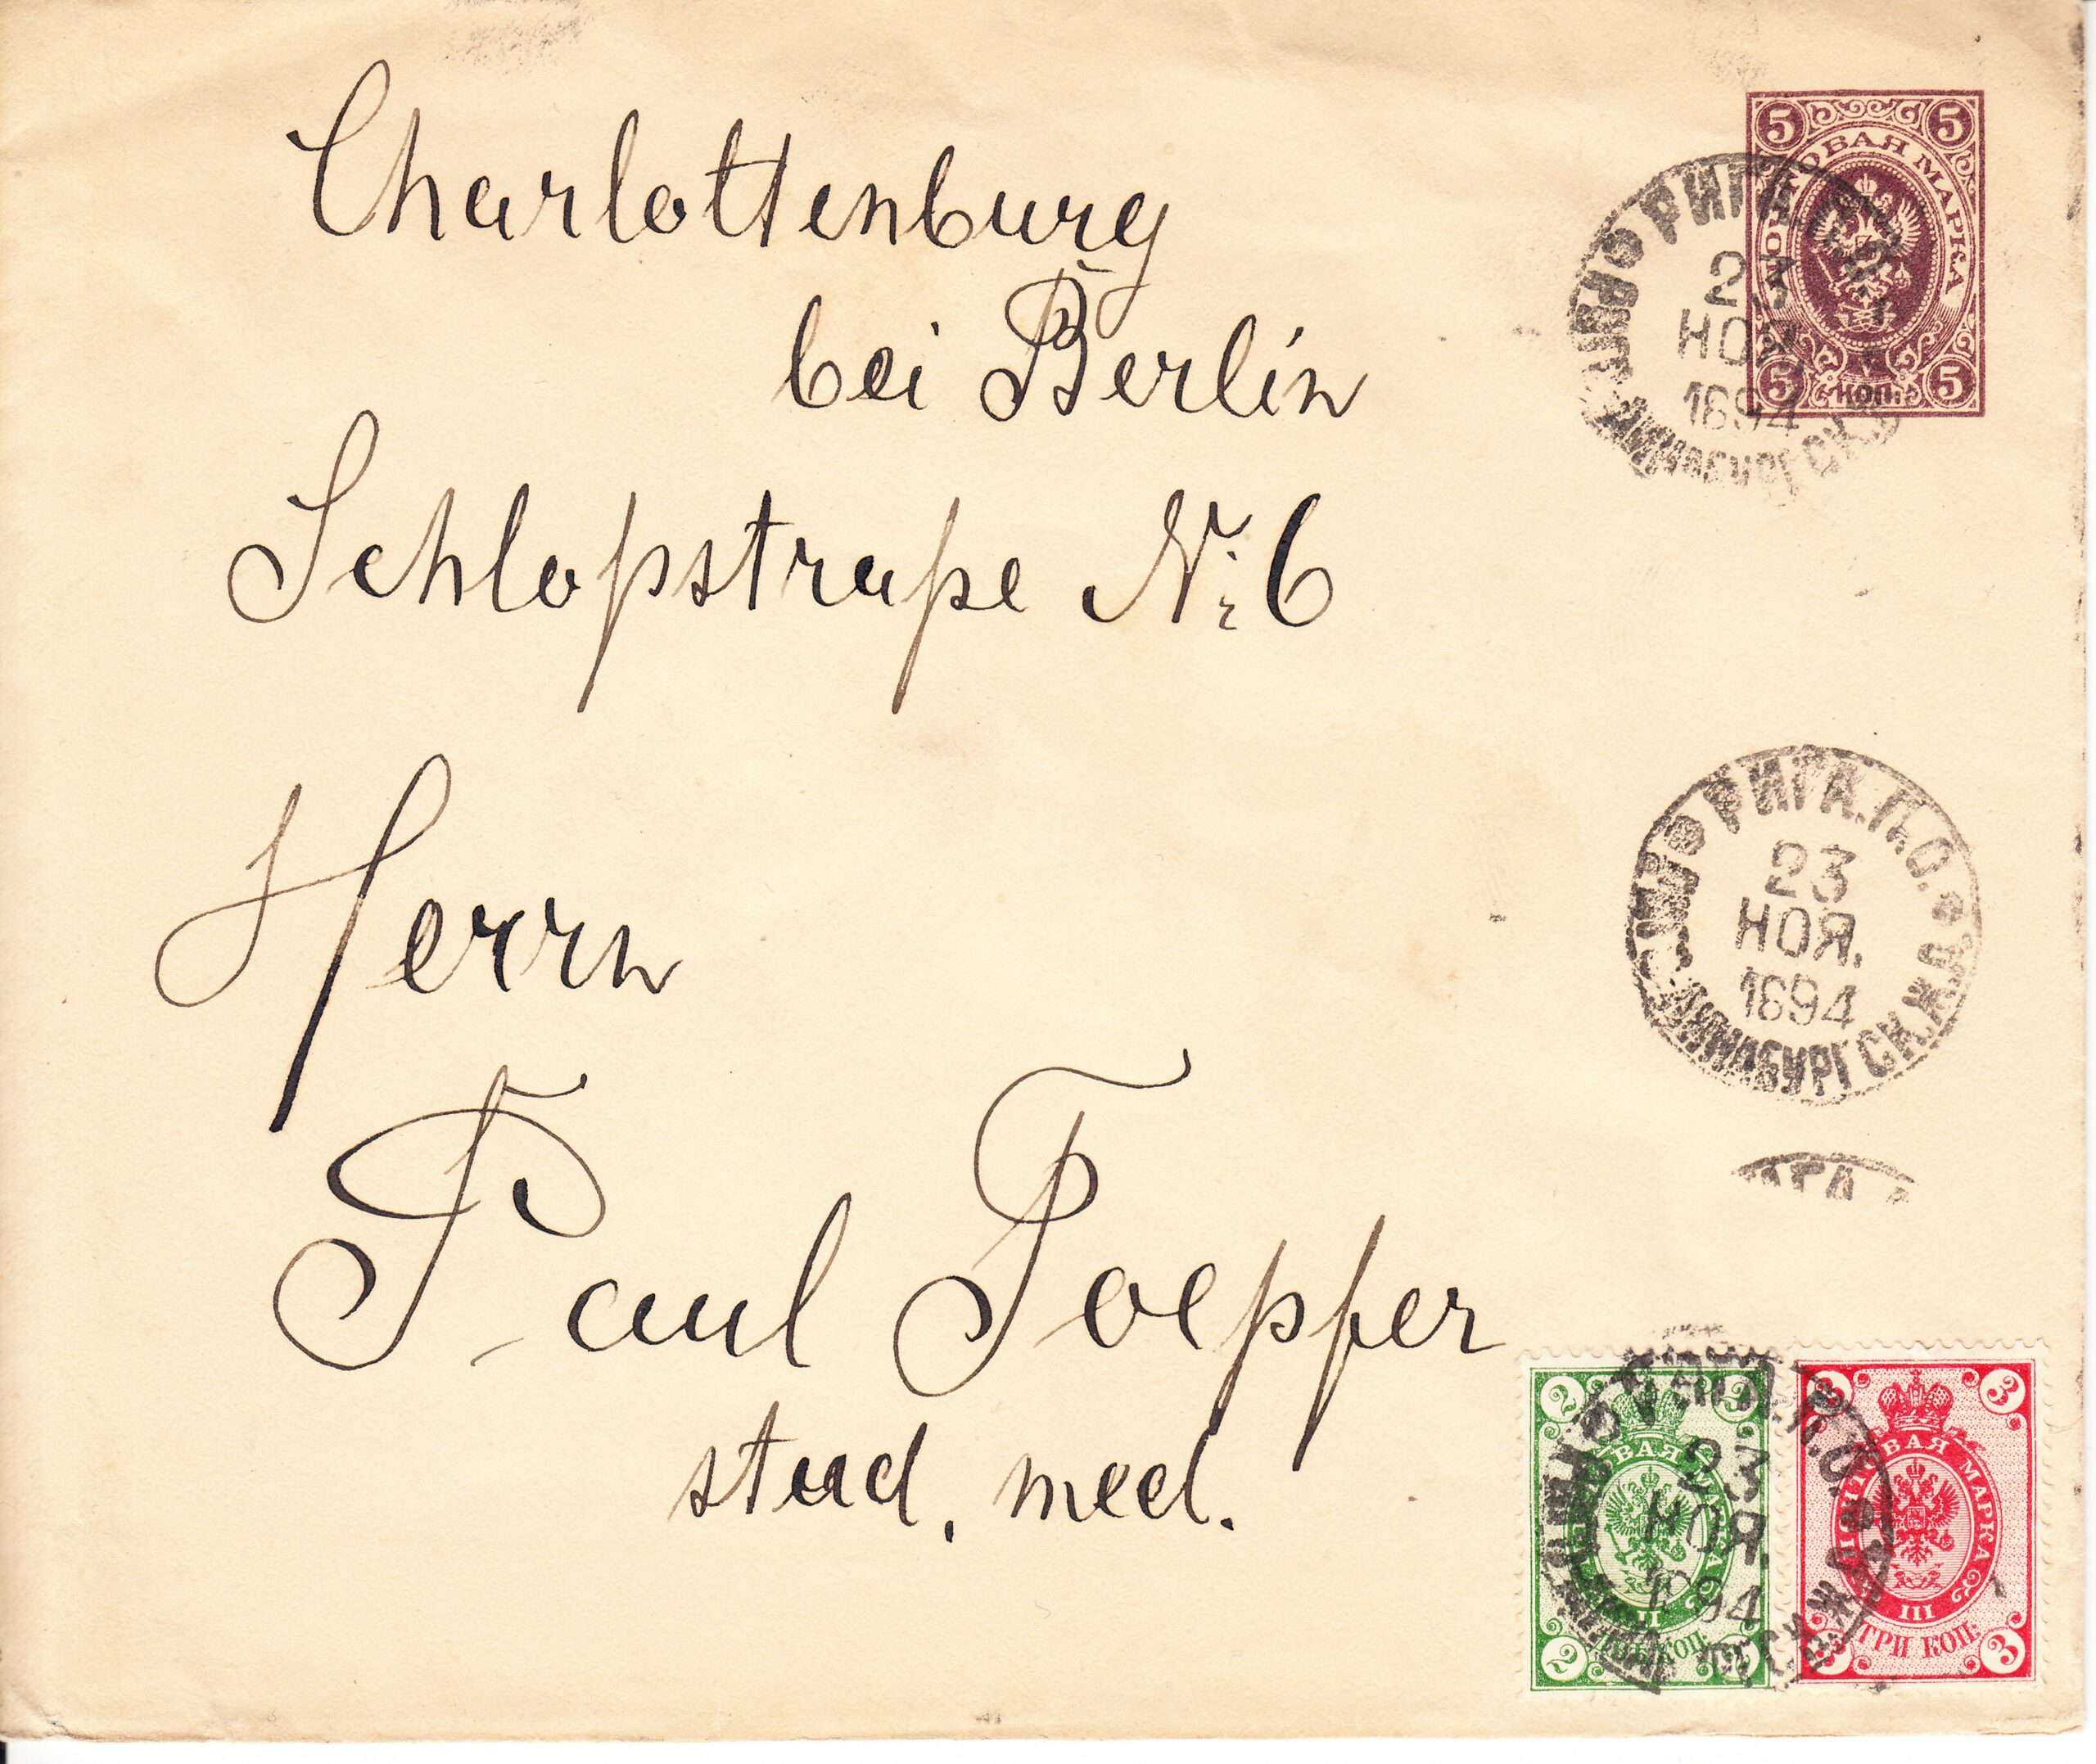 Charlottenburg
bei Berlin
Schloßstraße Nr: 6
Herrn
Paul Toepffer
stud. med.
5 5
ПОЧТОВАЯ МАРКА
5 КОП. 5
РИГА. П.О.
23
НОЯ.
1894
РИГА. П.О.
23
НОЯ.
1894
ДИНАБУРГСК. Ж.Д.
РИГА
2 2
ПОЧТОВАЯ МАРКА
II
ДВѢ КОП.
2
3 3
ПОЧТОВАЯ МАРКА
III
ТРИ КОП.
3 3
23
НОЯ.
1894